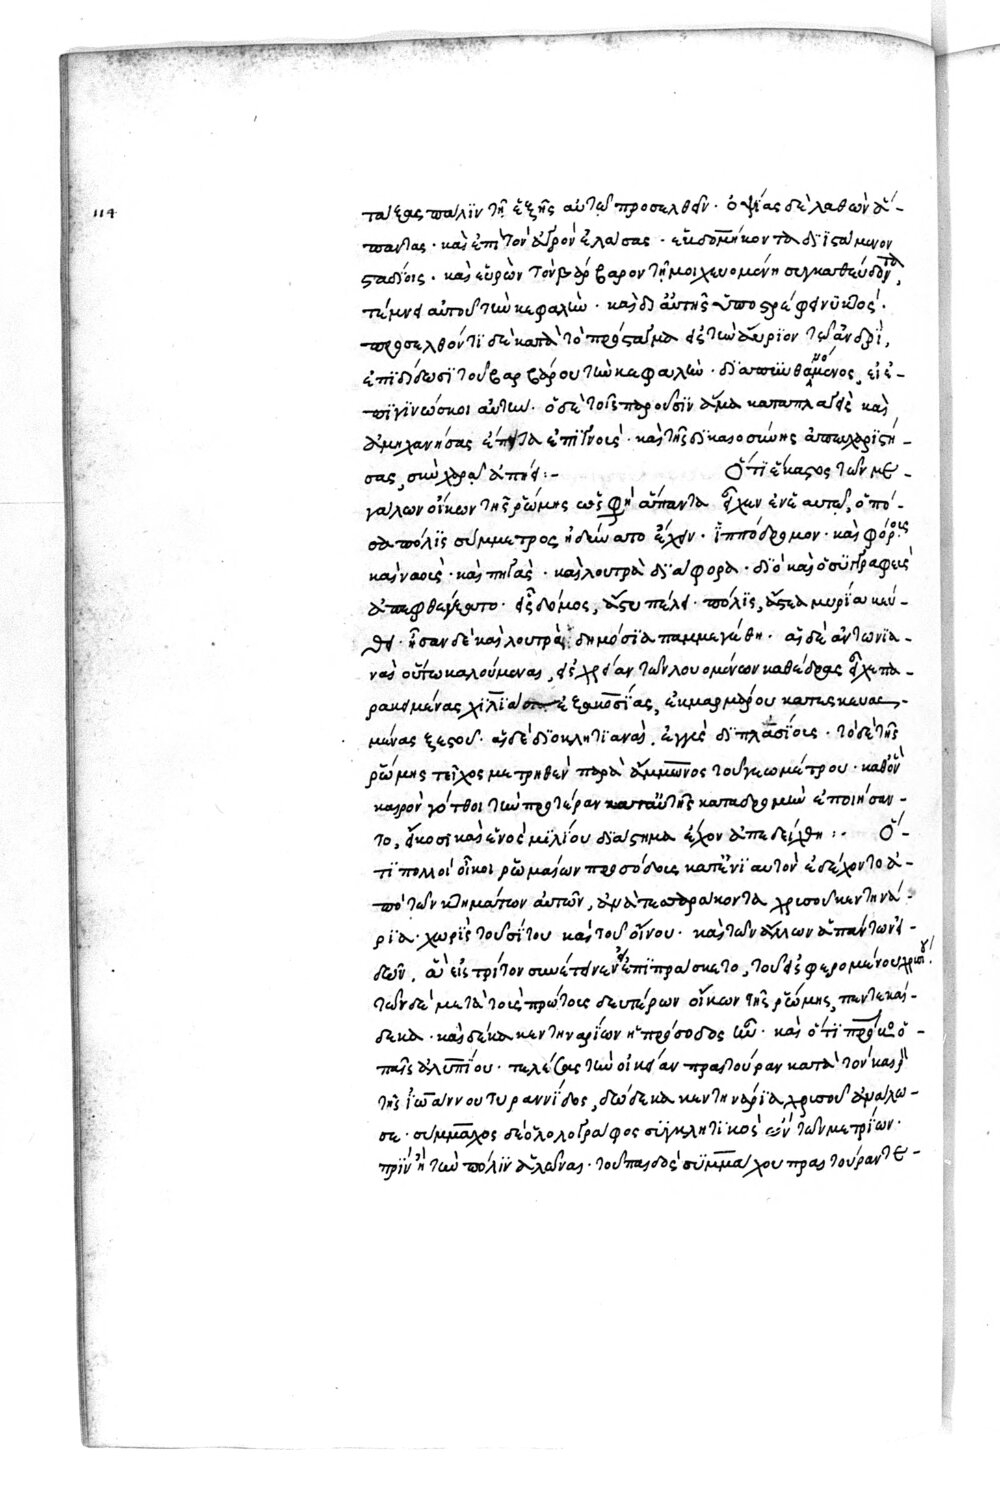 114
ταξας πάλϊν τῆ ἑξῆς αὐτῶ προσελθεῖν · ὁ ψίας δὲ λαθὼν ἅ-
παντας · καὶ ἐπὶ τὸν ἀγρὸν ἐλάσας · εβδομήκοντα διϊστάμενον
σταδίοις · καὶ εὑρὼν τὸν βάρβαρον τῆ μοιχευομένη συγκαθεύδοντα,
τέμνει αὐτοῦ τὴν κεφαλὴν · καὶ δι αὐτῆς ὑποστρέφει νυκτὸς ·
προσελθόντι δὲ κατὰ τὸ πρόσταγμα εἰς τὴν αὔριον τῶ ἀνδρὶ,
ἐπιδίδωσι τοῦ βαρβάρου τὴν κεφαλὴν · διαπυθόμενος, εἰ ἐ-
πϊγϊνώσκοι αὐτὴν · ὁ δὲ τοῖς παροῦσϊν ἅμα καταπλαγεὶς καὶ
ἀμηχανήσας ἔπειτα ἐπιγνοὺς · καὶ τῆς δικαιοσύνης ἀποχαριστή-
σας, σὺν χαρᾶ ἀπήει :- Ὅτι ἕκαστος τῶν με-
γάλων οἴκων τῆς ῥώμης ὥς φη ἅπαντα εἶχεν ἐν ἑαυτῶ, ὁπό-
σα πόλϊς σύμμετρος ἠδύνατο ἔχειν · ἱππόδρομον · καὶ φόροις
καὶ ναοὺς · καὶ πηγὰς · καὶ λουτρὰ διάφορα · διὸ καὶ ὁ συγγραφεὺς
ἀπεφθέγξατο · εἷς δόμος, ἄστυ πέλει · πόλϊς, ἄστεα μυρία κεύ-
θει · ἦσαν δὲ καὶ λουτρὰ δημόσια παμμεγέθη · αἱ δὲ ἀντωνϊα-
ναὶ οὕτω καλούμεναι, εἰς χρείαν τῶν λουομένων καθέδρας εἶχε πα-
ρακειμένας χιλίας ἑξακοσίας, ἐκ μαρμάρου κατεσκευασ-
μένας ξεστοῦ · αἱ δὲ διοκλητϊαναὶ, ἐγγὺς διπλασίοις · τὸ δὲ τῆς
ῥώμης τεῖχος μετρηθὲν παρὰ ἄμμωνος τοῦ γεωμέτρου · καθὸν
καιρὸν γότθοι τὴν προτέραν κατ αὐτῆς καταδρομὴν ἐποιήσαν-
το, εἴκοσι καὶ ἑνὸς μιλίου διάστημα ἔχον ἀπεδείχθη :- Ὅ-
τι πολλοὶ οἶκοι ῥωμαίων προσόδοις κατ ἐνϊαυτὸν ἐδέχοντο ἀ-
πὸ τῶν κτημάτων αὐτῶν, ἀνὰ τεσσαράκοντα χρυσοῦ κεντηνά-
ρια · χωρὶς τοῦ σίτου καὶ τοῦ οἴνου · καὶ τῶν ἄλλων ἁπάντων εἰ-
δῶν, ἃ εἰς τρίτον συνέτεινεν εἰ ἐπιπράσκετο, τοῦ εἰσφερομένου χρυσίου ·
τῶν δὲ μετὰ τοὺς πρώτοις δευτέρων οἴκων τῆς ῥώμης, πεντεκαί-
δεκα · καὶ δέκα κεντηναρίων ἡ πρόσοδος ἦν · καὶ ὅτι πρόβος ὁ
παῖς ἀλυπίου · τελέσας τὴν οἰκείαν πραιτούραν κατὰ τὸν καιρὸν
τῆς ἰωάννου τυραννίδος, δώδεκα κεντηνάρια χρυσοῦ ἀνάλω-
σε · σύμμαχος δὲ ὁ λογογράφος συγκλητικὸς ὢν τῶν μετρίων ·
πρϊν ἢ τὴν πόλϊν ἁλῶναι · τοῦ παιδὸς συμμάχου πραιτούραν τε-